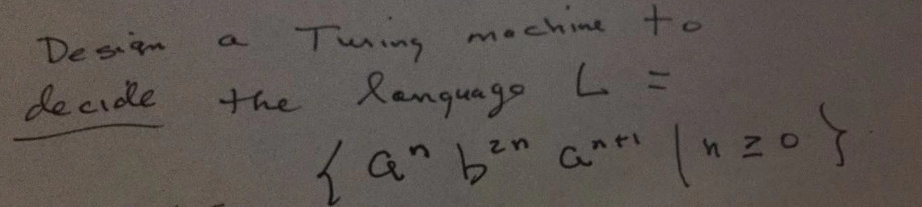 Design a Turing machine to
decide the language L =
{ aⁿ b²ⁿ aⁿ⁺¹ | n ≥ 0 }.